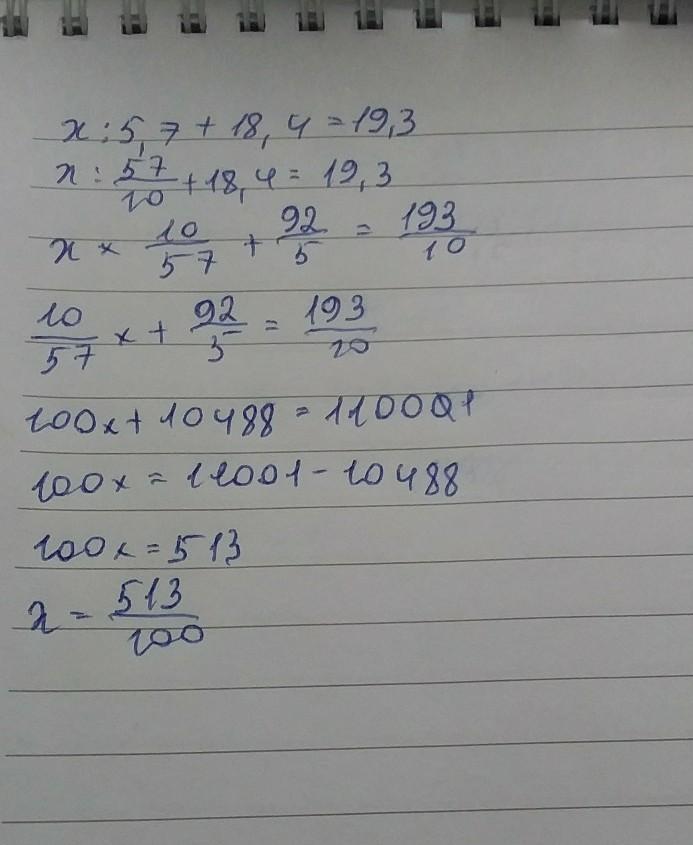 x : 5,7 + 18,4 = 19,3
x : 57/10 + 18,4 = 19,3
x × 10/57 + 92/5 = 193/10
10/57 x + 92/5 = 193/10
100x + 10488 = 110001
100x = 11001 - 10488
100x = 513
x = 513/100